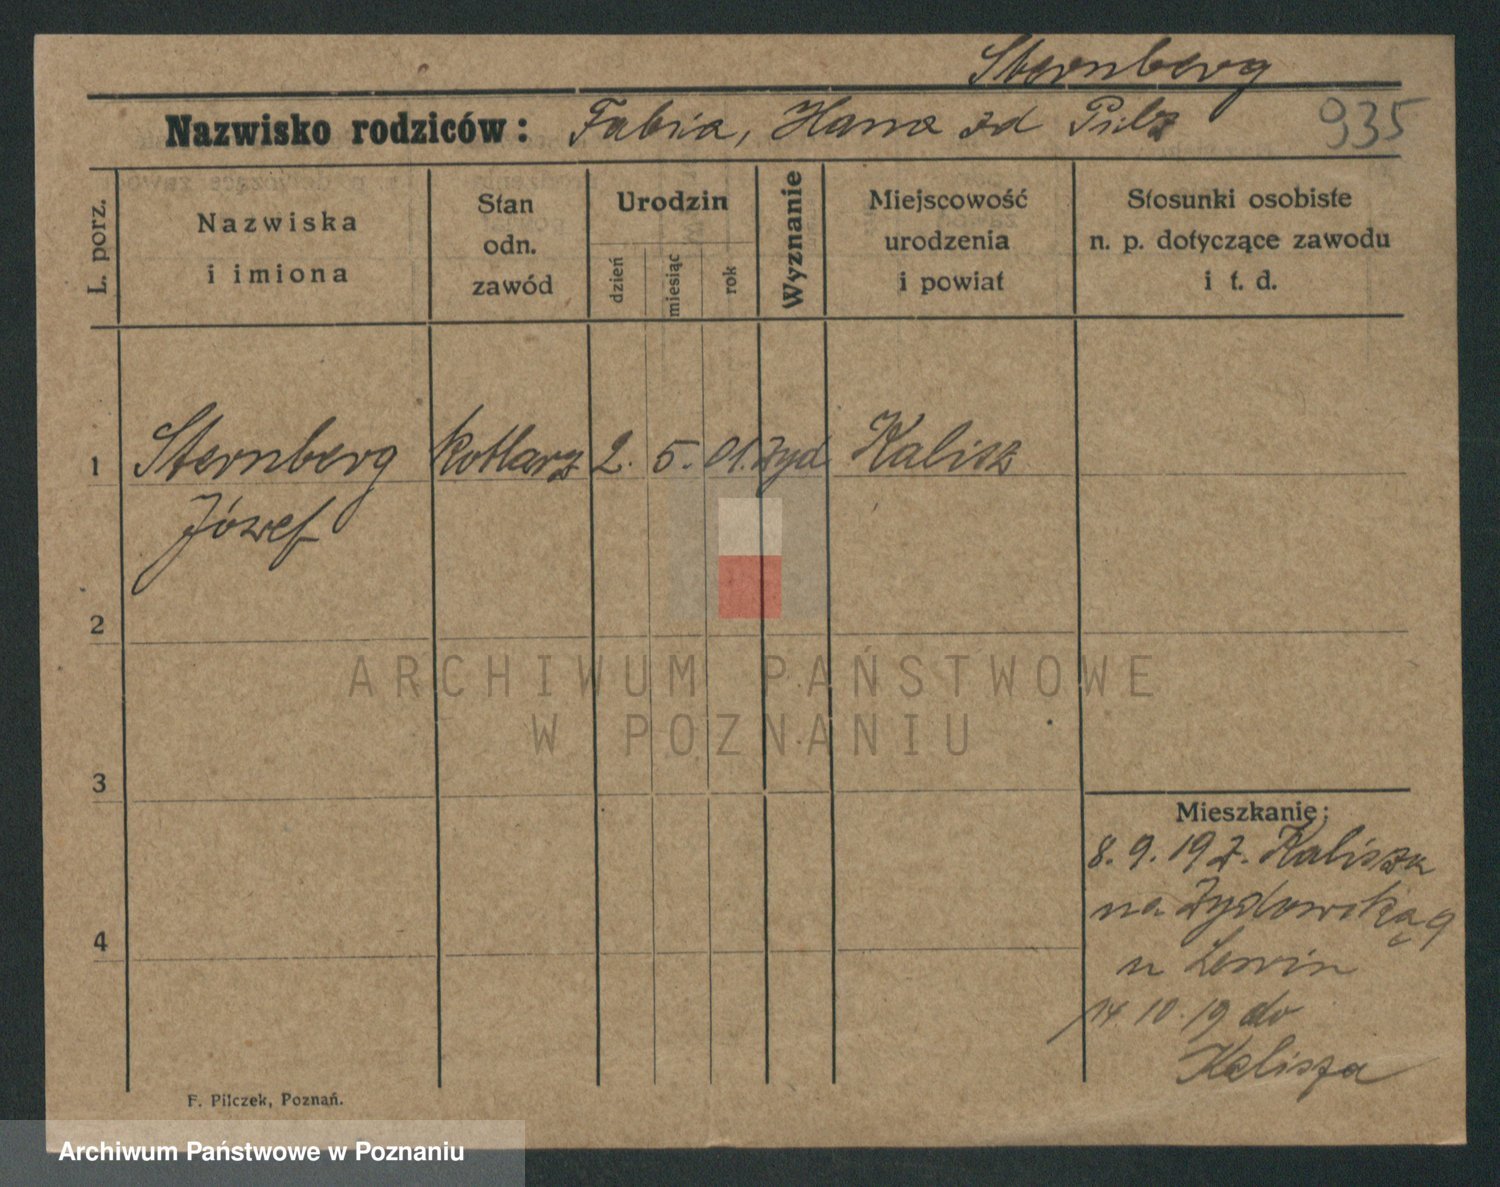 Sternberg
Nazwisko rodziców: Fabia, Hanna zd Pilz
935
L. porz.
Nazwiska i imiona
Stan odn. zawód
Urodzin
dzień
miesiąc
rok
Wyznanie
Miejscowość urodzenia i powiat
Stosunki osobiste n. p. dotyczące zawodu i t. d.
1 Sternberg kotlarz 2. 5. 01. żyd Kalisz
Józef
2
3
4
Mieszkanie:
8. 9. 19 z. Kalisza
na Żydowską 9
u Lewin
14 10. 19 do
Kalisza
F. Pilczek, Poznań.
ARCHIWUM PAŃSTWOWE
W POZNANIU
Archiwum Państwowe w Poznaniu